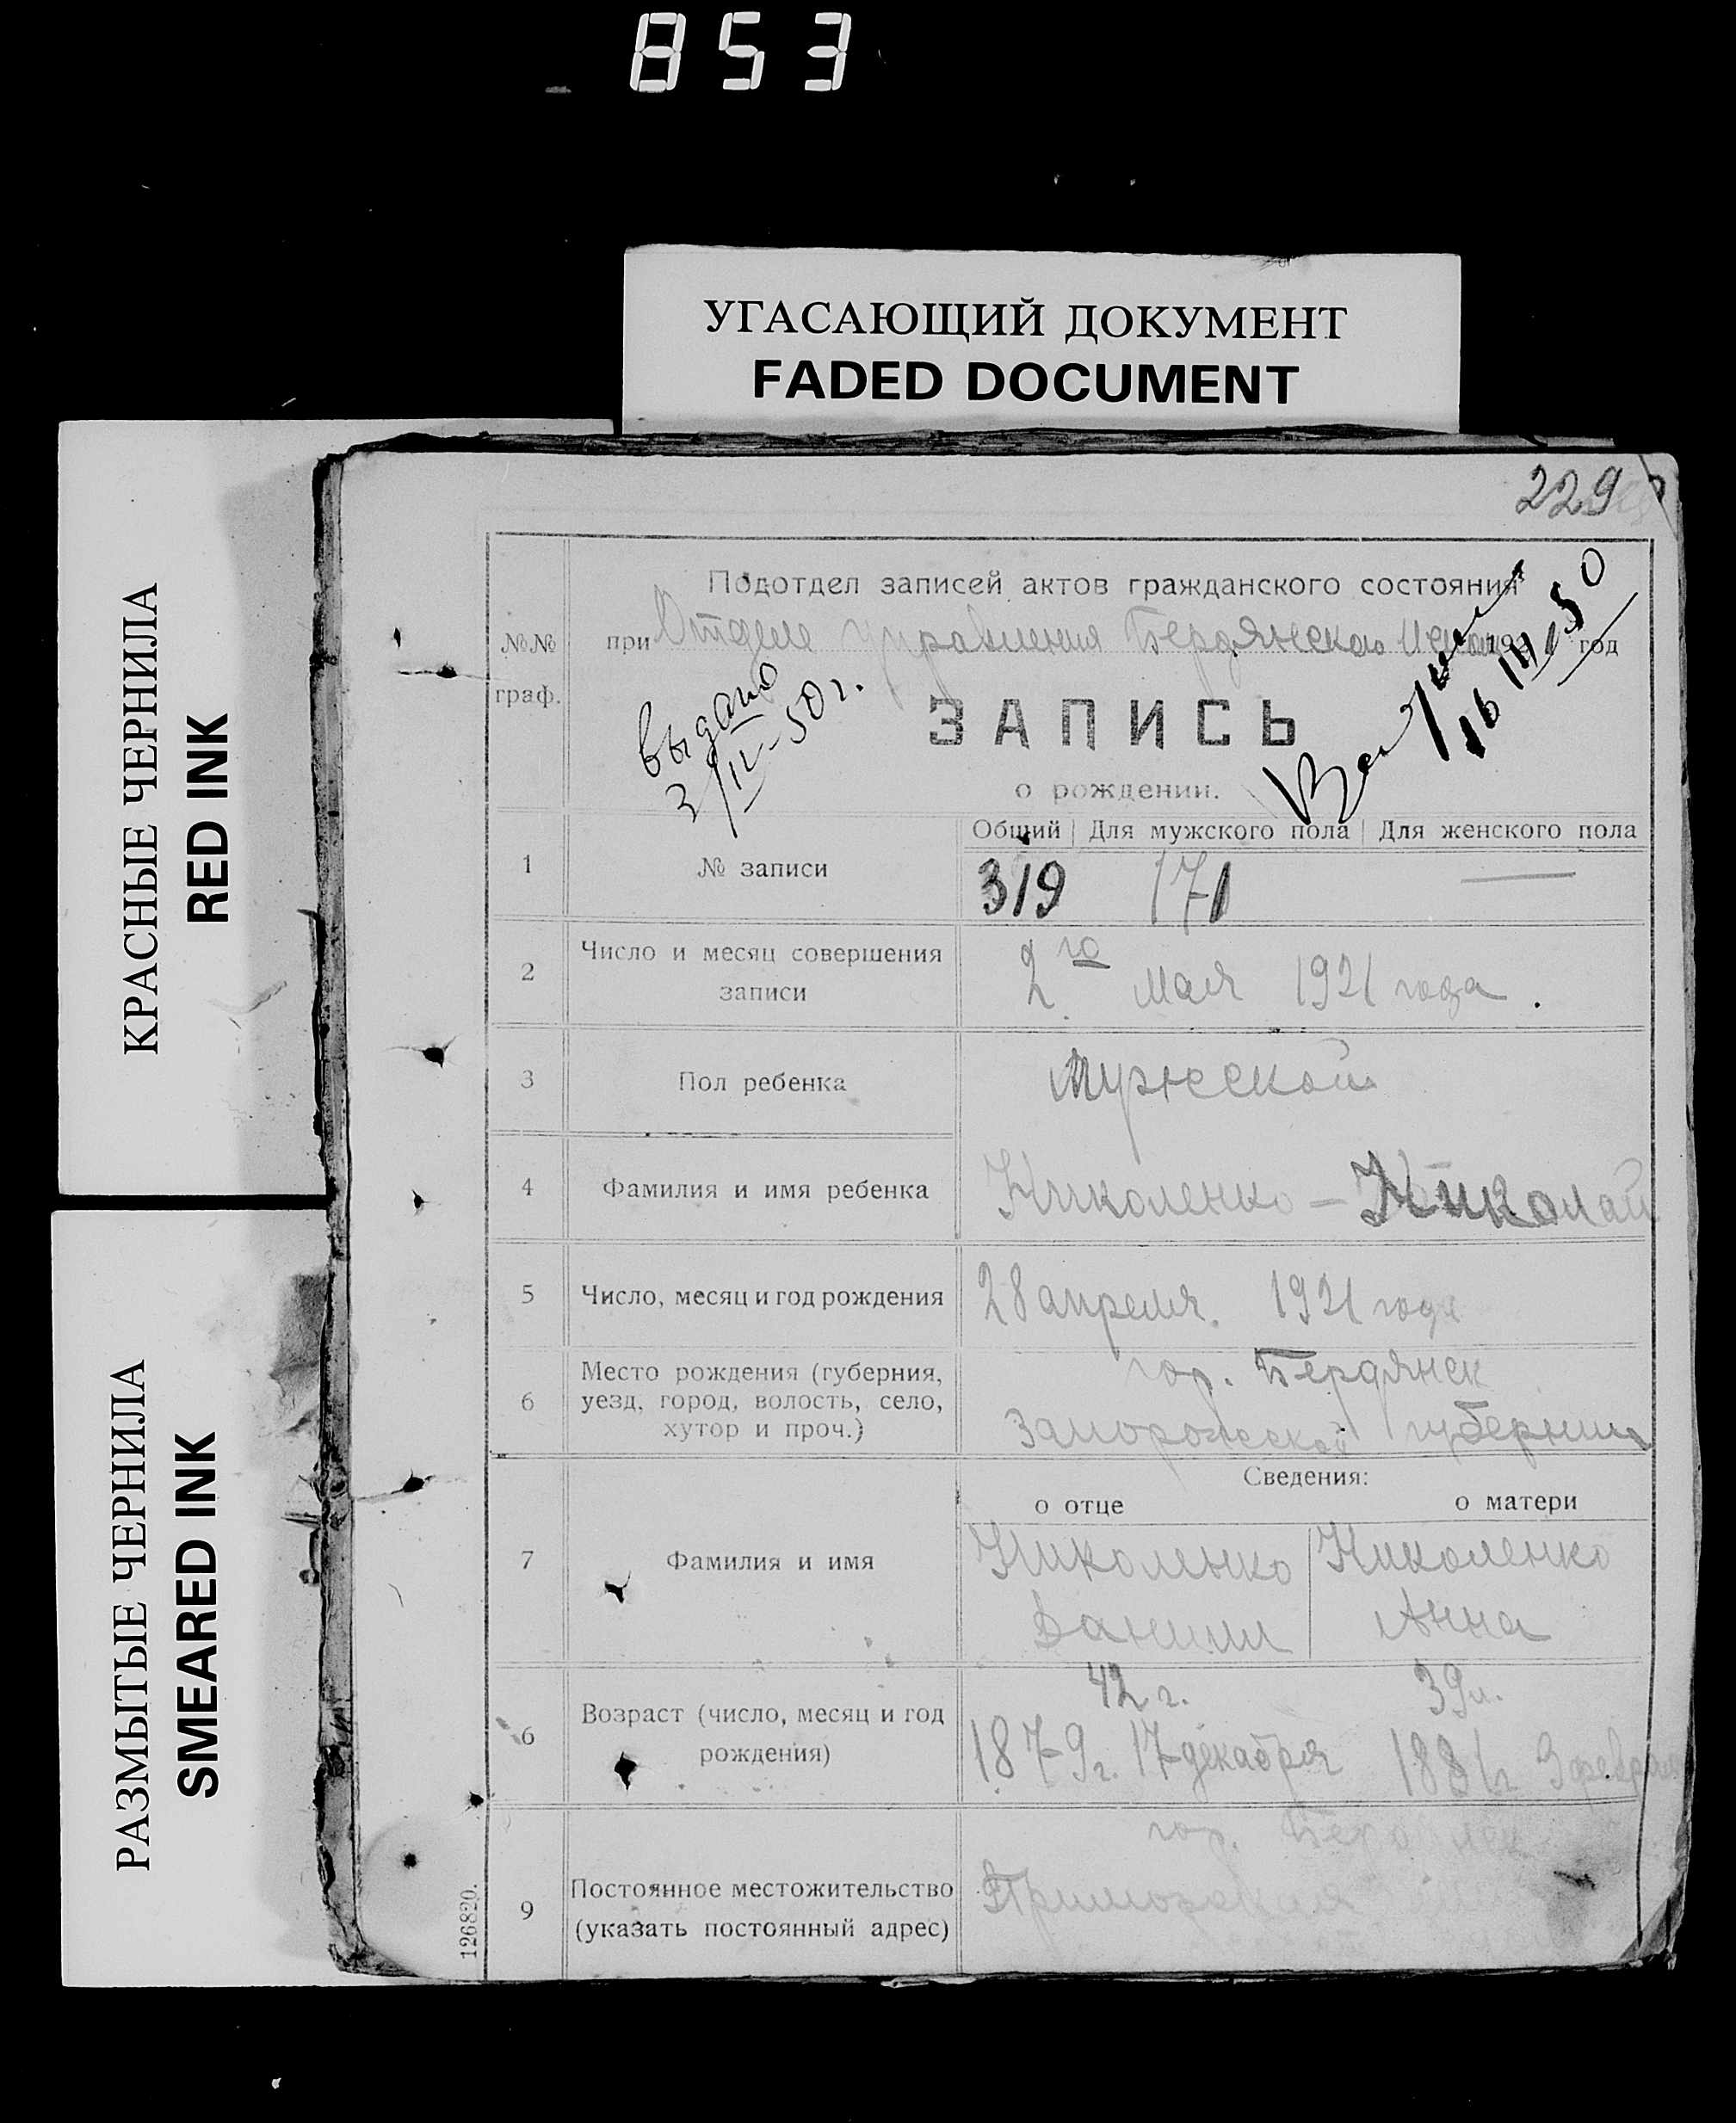 853
УГАСАЮЩИЙ ДОКУМЕНТ
FADED DOCUMENT
КРАСНЫЕ ЧЕРНИЛА
RED INK
РАЗМЫТЫЕ ЧЕРНИЛА
SMEARED INK
229
Подотдел записей актов гражданского состояния
№№ граф.
при Отделе управления Бердянского год
выдано
3/IV-50 г.
ЗАПИСЬ
о рождении.
Общий Для мужского пола Для женского пола
1 № записи 319 171 —
2 Число и месяц совершения записи 2го мая 1921 года.
3 Пол ребенка мужеской
4 Фамилия и имя ребенка Николенко - Николай
5 Число, месяц и год рождения 28 апреля. 1921 года
6 Место рождения (губерния, уезд, город, волость, село, хутор и проч.) гор. Бердянск
Запорожской губернии
Сведения:
о отце о матери
7 Фамилия и имя Николенко Николенко
Даниил Анна
42 г. 39 л.
6 Возраст (число, месяц и год рождения) 1879 г. 17 декабря 1881 г. 3 февраля
гор. Бердянск
9 Постоянное местожительство (указать постоянный адрес) Приморская
126820.